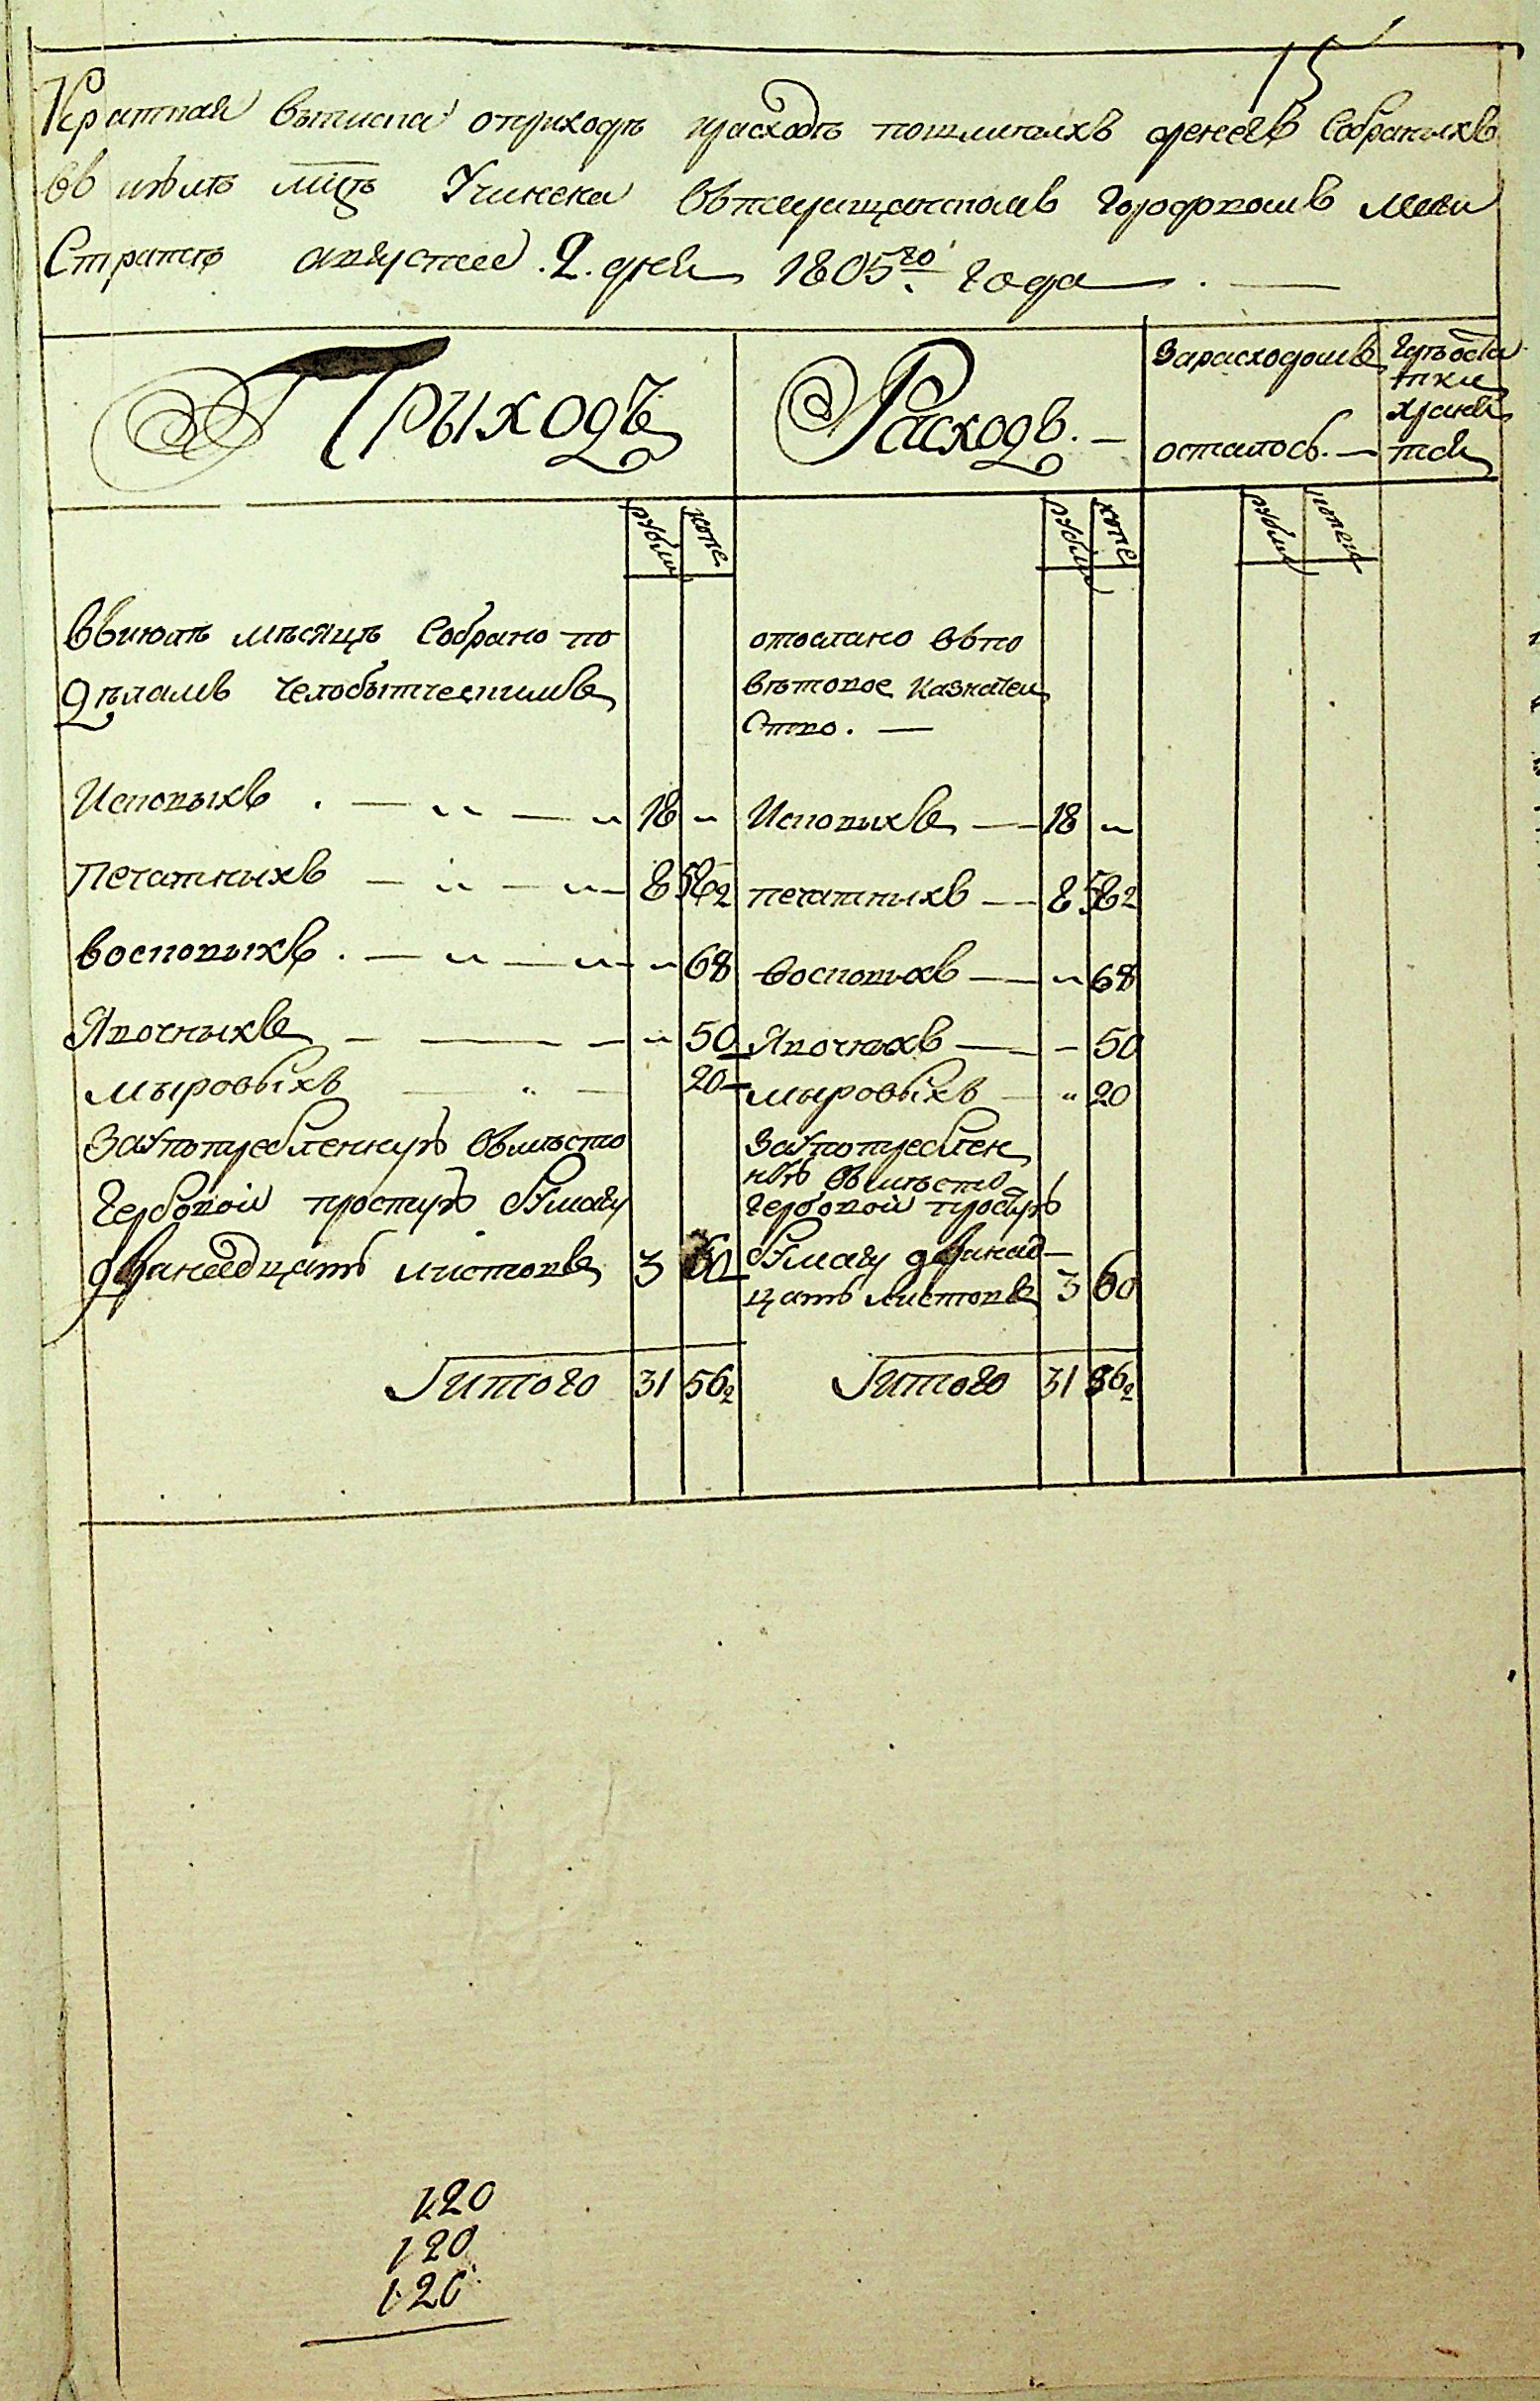 15
Краткая выписка оприходѣ ирасходѣ пошлинныхъ денегъ собраныхъ
въ июлѣ мцѣ Учинена въ городовомъ маги
стратѣ августа 2. дня 1805го года
Прыходъ
Расходъ.
Зарасходомъ
осталось.
Гдѣ оста
тки
храня
тся
рубли
копе
рубли
копе
рубли
копеи
Въиюлѣ мѣсяцѣ собрано по
дѣламъ челобытческимъ
отослано въпо
вѣтовое казначеи
ство.
Исковыхъ 18
Исковыхъ 18
Печатныхъ 8 58 2
печатныхъ 8 58 2
восковыхъ. 68
восковыхъ 68
Явочныхъ 50
Явочныхъ 50
мыровыхъ 20
мыровыхъ 20
Заупотребленную вмѣсто
гербовой простую бумагу
дванадцать листовъ 3 60
Заупотреблен
ную вмѣсто
гербовой простую
бумагу дванад
цать листовъ 3 60
Итого 31 56 2
Итого 31 56 2
120
120
120